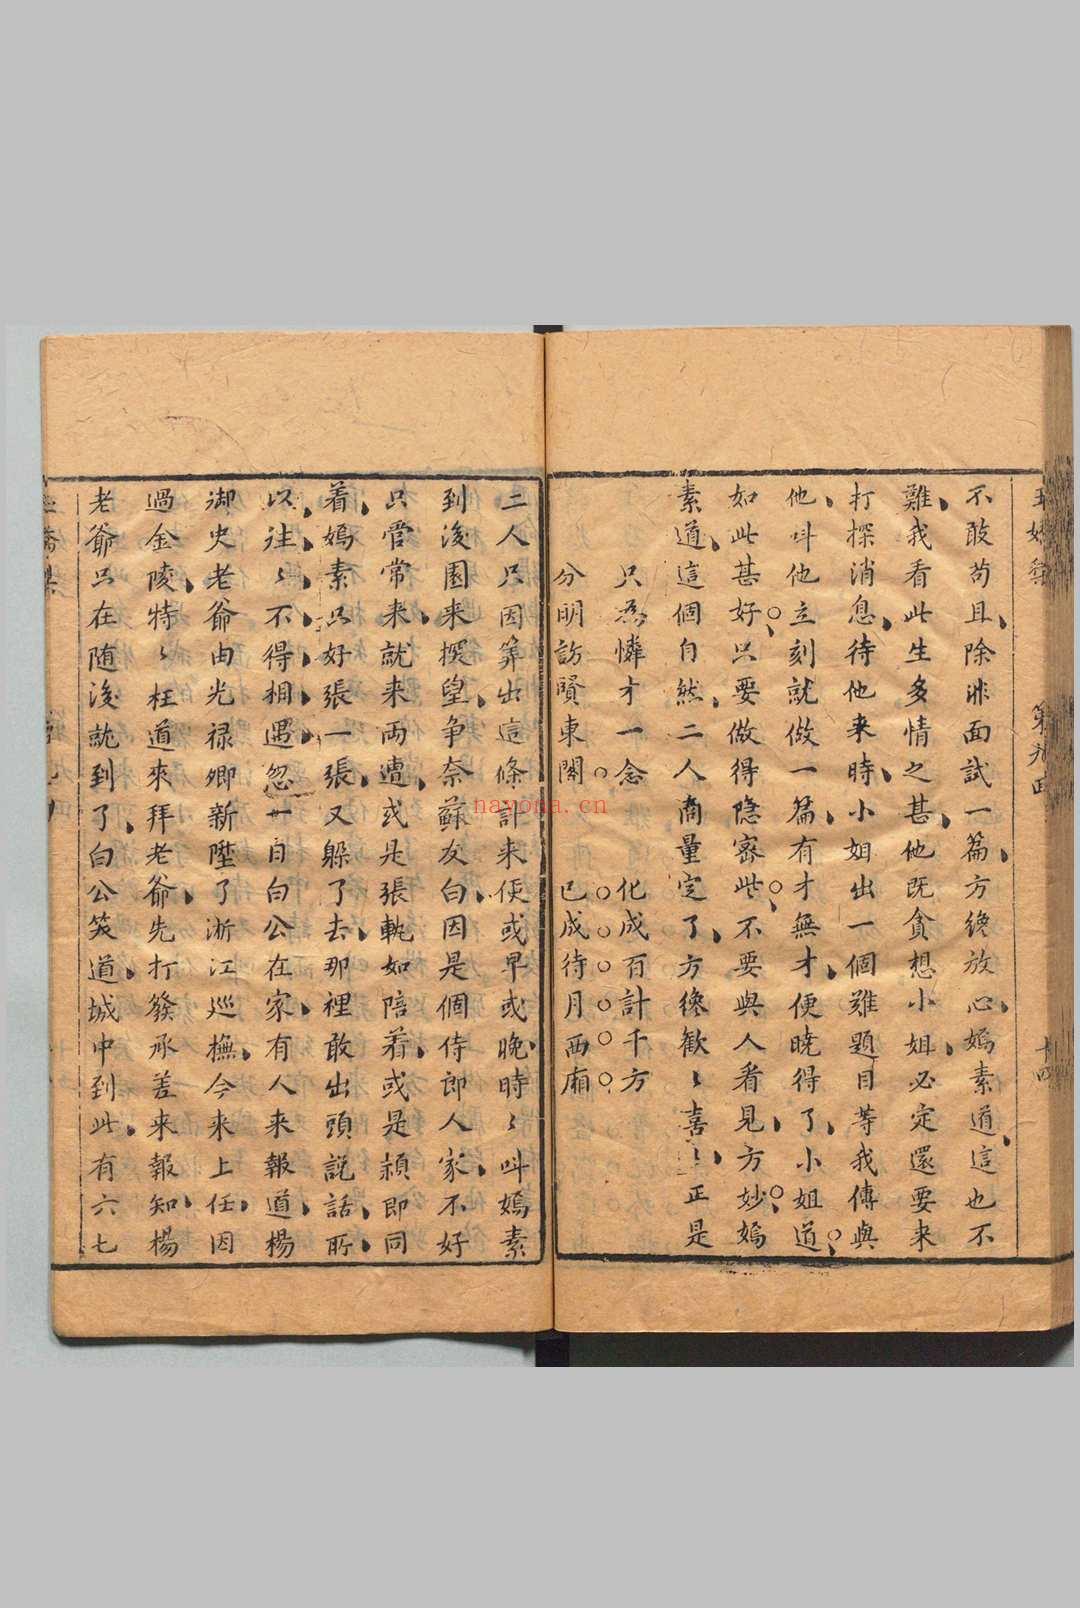 第九回
十四
不敢苟且除非面試一篇方纔放心嫣素道這也不
難我看此生多情之甚他既貪想小姐必定還要来
打探消息待他来時小姐出一個難題目等我傳與
他呌他立刻就做一篇有才無才便曉得了小姐道
如此甚好只要做得隐宻些不要與人看見方妙嫣
素道這個自然二人商量定了方纔歡〻喜〻正是
只為憐才一念 化成百計千方
分明訪賢東閣 已成待月西廂
二人只因筭出這條計来便或早或晚時〻呌嫣素
到後園来探望争奈蘇友白因是個侍郎人家不好
只管常来就来両遭或是張軌如陪着或是頴郎同
着嫣素只好張一張又躲了去那裡敢出頭説話所
以往〻不得相遇忽一日白公在家有人来報道楊
御史老爺由光禄卿新陞了浙江巡撫今来上任因
過金陵特〻枉道來拜老爺先打發承差来報知楊
老爺只在随後就到了白公笑道城中到此有六七
nayona.cn